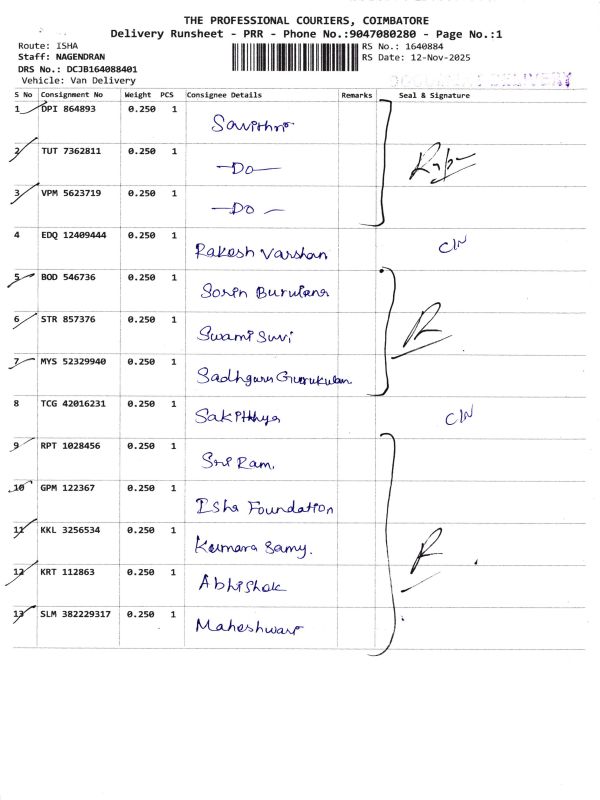 THE PROFESSIONAL COURIERS, COIMBATORE
Delivery Runsheet - PRR - Phone No.:9047080280 - Page No.:1
Route: ISHA RS No.: 1640884
Staff: NAGENDRAN RS Date: 12-Nov-2025
DRS No.: DCJB164088401
Vehicle: Van Delivery
S No Consignment No Weight PCS Consignee Details Remarks Seal & Signature
1 DPI 864893 0.250 1 Savithri
2 TUT 7362811 0.250 1 —Do—
3 VPM 5623719 0.250 1 —Do—
4 EDQ 12409444 0.250 1 Rakesh Varshan C/N
5 BOD 546736 0.250 1
6 STR 857376 0.250 1 Swami Suvi
7 MYS 52329940 0.250 1 Sadhguru Gurukulam
8 TCG 42016231 0.250 1 C/N
9 RPT 1028456 0.250 1 Sri Ram.
10 GPM 122367 0.250 1 Isha Foundation
11 KKL 3256534 0.250 1 Kumara Samy.
12 KRT 112863 0.250 1 Abhishek
13 SLM 382229317 0.250 1 Maheshwari